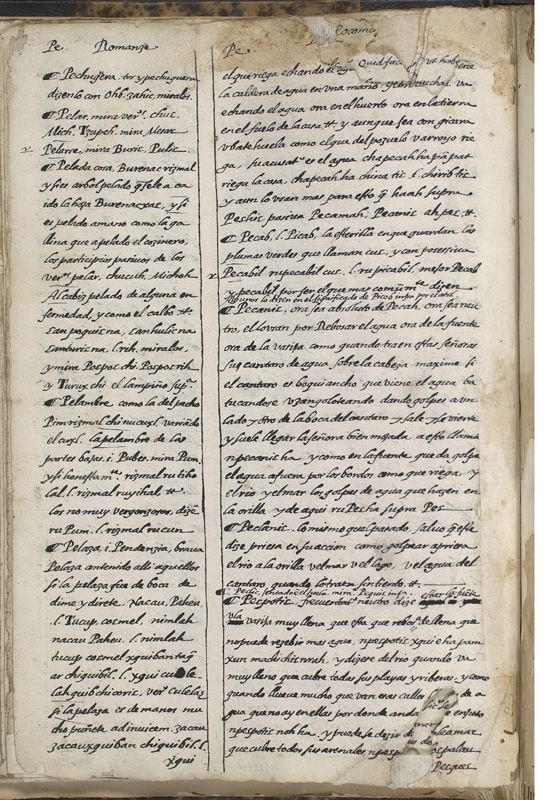 Pe. Romance
¶ Pechugera. tos y pechuguera
dizenlo con Ohb. zahic, miralos.
¶ Pelar, mira ver. chuc.
Mich. Tzupeh. mira Mesar
Pelarse, mira Buric. Pulic.
¶ Pelada cosa, Burenac rizmal
y si es arbol pelado q se le a ca
ido la hoja Burenac xac, y si
es pelado a mano como la ga
llina que a pelado el cozinero,
los participios pasivos de los
ver. pelar, chucuth, Michoh
Alcabis pelado de alguna en
fermedad, y como el calbo
y mira Pospoc chi. Pospoc rih
y Turux chi el lampiño sup.
¶ Pelambre como la del pecho
Pim rizmal chi nucuxl. variãdo
el cuxl. la pelambre de las
partes bajas. i. Pubes. mira Pum,
y si honestam. rizmal ru tiho
lal. l. rizmal ruythal,
los no muy vergonzosos, dize
ru Pum. l. rizmal rucun
¶ Pelaza. i. Pendenzia, brava
Pelaza an tenido alli aquellos
si la pelaza fue de boca de
dime y direte. nacau. Paheu.
l. Tucup cocmel. nimlah
nacau Paheu. l. nimlah
tucup cocmel xquiban taq
ar chiquibil. l. xqui
lah quib chi coric. ver. culelas
si la pelaza es de manos mu
cho puñete ad invicem. zacau
zacau xquiban chiquibil. l.
xqui
Pe. Pocomc
el que riega echando el Quid fac ut hab ene
la caldera de agua en vna mano va
echando el agua ora en el huerto ora en la tierra
en el suelo de la casa y aunque sea con gicara
v batehuela como el que del pozuelo v arroyo rie
ga, su acusat. es el agua chapecah ha pã pat
riega la casa, chapecah ha china tic. i. chirib tic
y aun lo vsan mas para esto q haah supra
Peshic pasiva Pecamah. Pecanic ah pec
¶ Pecab. l. Picab, la esterilla en que guardan las
plumas verdes que llaman cuc, y con posesiva
Pecabil ru pecabil cuc. l. ru picabil. mejor Pecab
y pecabil por ser el que mas comũm. dizen
algunos lo dizen en el significado de Picab infra por el atril
¶ Pecanic, ora sea absoluto de Pecah, ora sea neu
tro, el lo vsan por Rebosar el agua ora de la fuente
ora de la vasija como quando traen estas señoras
sus cantaro de agua sobre la cabeza maxime si
el cantaro es boquiancho que viene el agua ba
tucandose v zangoloteando dando golpes a vn
lado y otro de la boca del cantaro y sale y se vierte
y suele llegar la señora bien mojada a esto llama
n pecanic ha y como en la fuente que da golpe
el agua a fuera por los bordos como que riega y
el rio y el mar los golpes de agua que hazen en
la orilla y de aqui ru Pecha supra Pec
¶ Peclanic. lo mismo que el pasado, salvo q este
dize priesa en su accion como golpear apriesa
el rio a la orilla vel mar vel lago. vel agua del
cantaro quando lo traen sin tiento
¶ Pecic, sentado el pelo. mira Pequic infra
¶ Pecpotic. frequentat. neutro dize estar la fuete
vla vasija muy llena que esta que rebosa de llena que
no puede rezebir mas agua, n pecpotic xqui e ha pam
xun machi chic nrah. y dizese del rio quando va
muy lleno que cubre todas sus playas y riberas, y como
quando llueve mucho que van esas calles llenas de a
gua que no ay en ellas por donde anda enjuto
n pecpotic nah ha. y puede se dezir de la mar
que cubre todos sus arenales
Pecpec